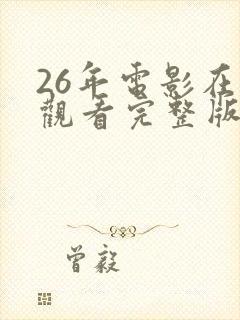 26年電影在
觀看完整版
曾毅